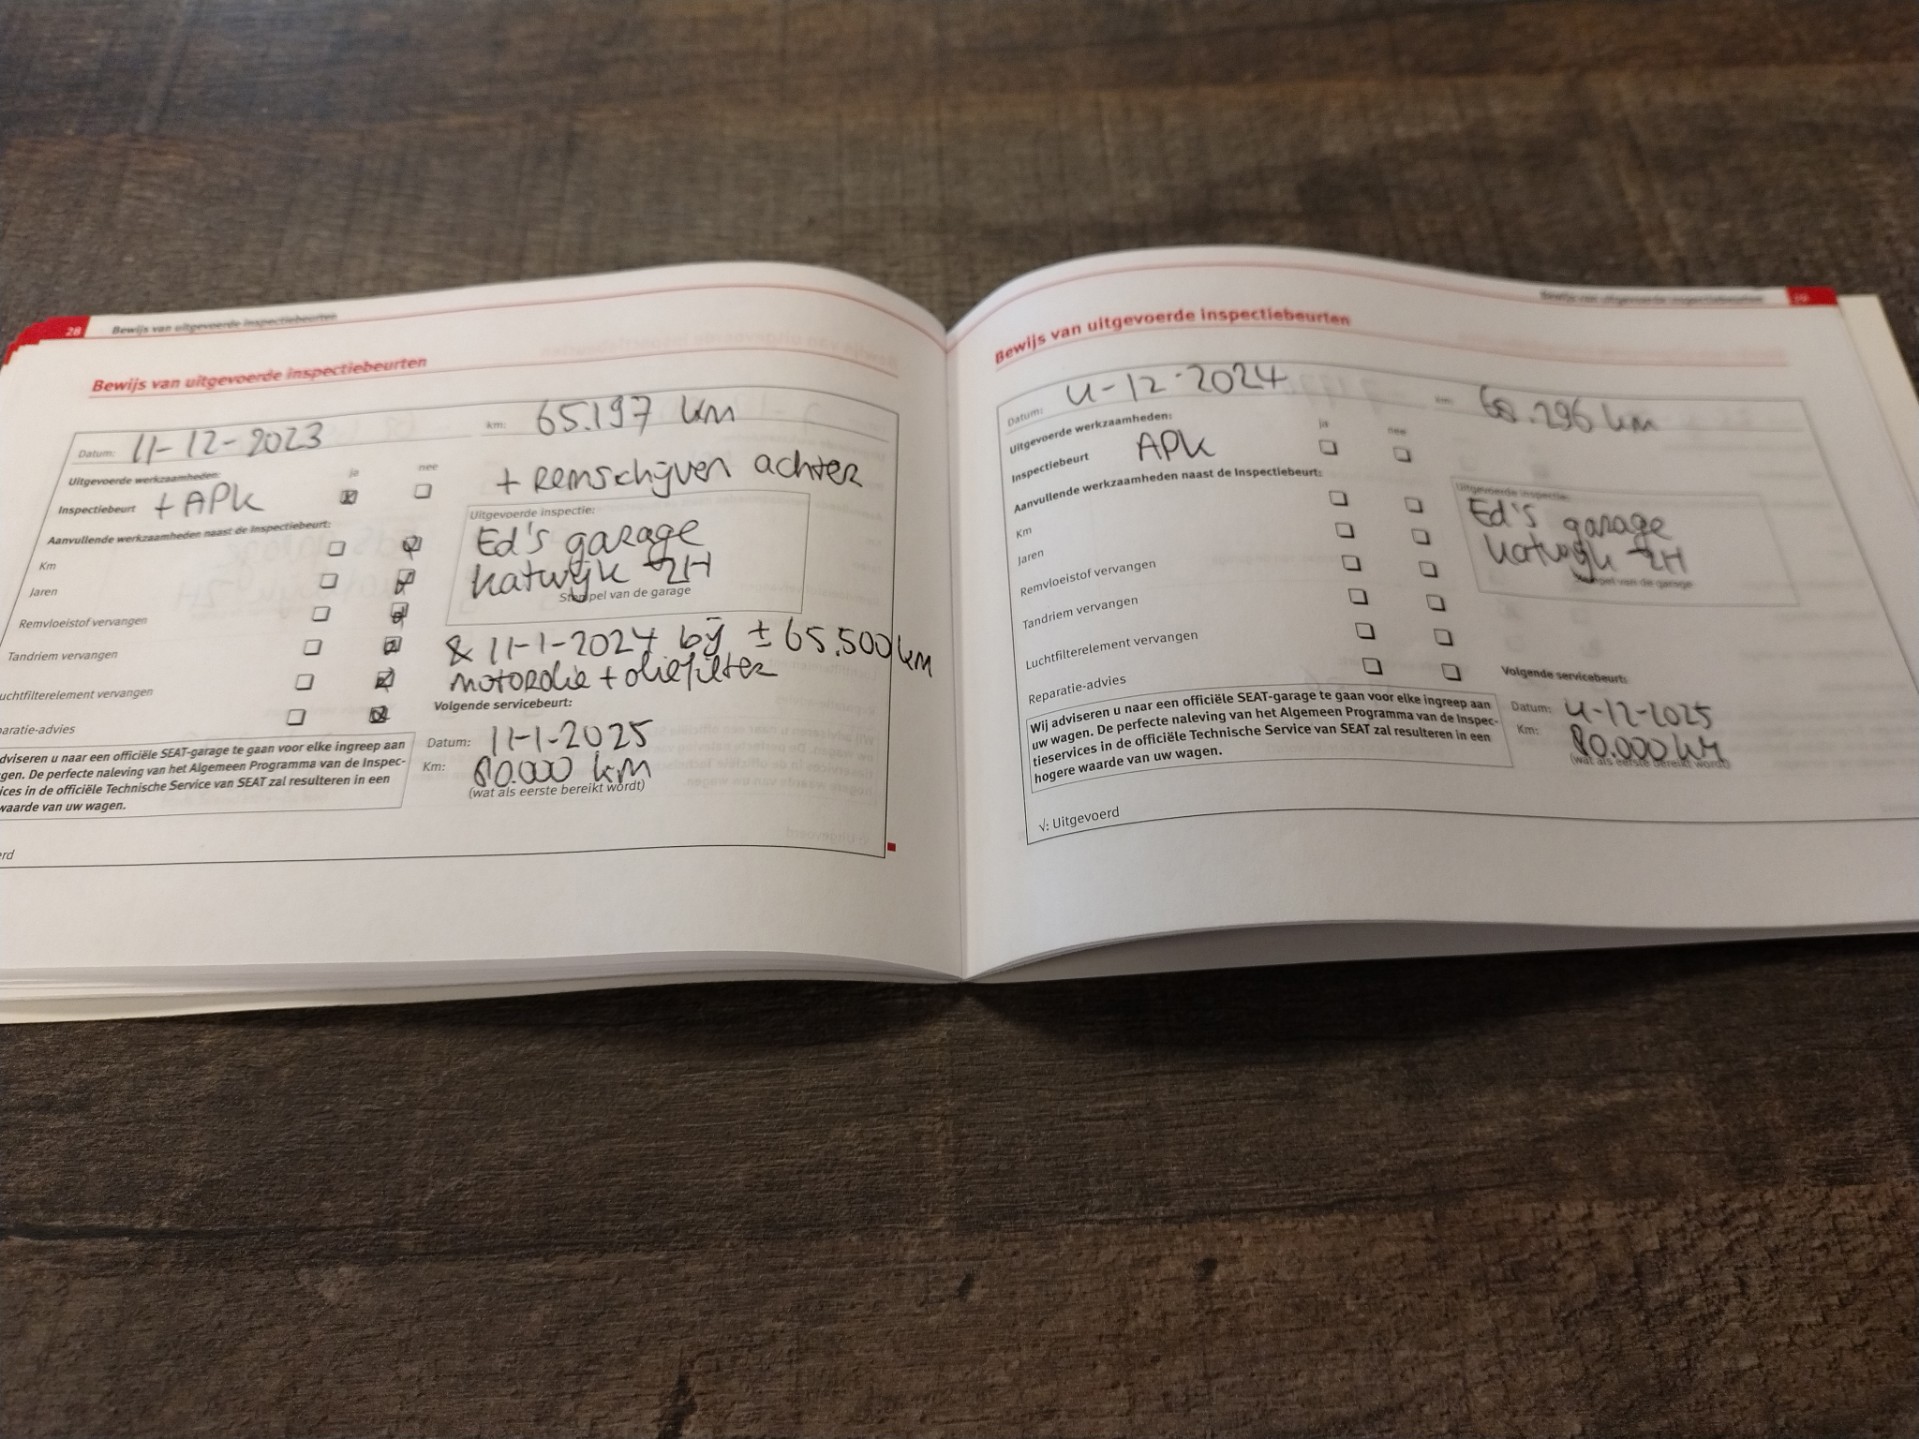 28 Bewijs van uitgevoerde inspectiebeurten
Bewijs van uitgevoerde inspectiebeurten
Datum: 11-12-2023 km: 65.197 km
Uitgevoerde werkzaamheden: ja nee
+ Remschijven achter
Inspectiebeurt + APK
Aanvullende werkzaamheden naast de Inspectiebeurt:
Km
Jaren
Remvloeistof vervangen
Tandriem vervangen
uchtfilterelement vervangen
paratie-advies
Uitgevoerde inspectie:
Ed's garage
Katwijk ZH
Stempel van de garage
& 11-1-2024 bij ± 65.500 km
motorolie + oliefilter
Volgende servicebeurt:
Datum: 11-1-2025
Km: 80.000 km
(wat als eerste bereikt wordt)
dviseren u naar een officiële SEAT-garage te gaan voor elke ingreep aan
gen. De perfecte naleving van het Algemeen Programma van de Inspec-
ices in de officiële Technische Service van SEAT zal resulteren in een
waarde van uw wagen.
erd
Bewijs van uitgevoerde inspectiebeurten
Bewijs van uitgevoerde inspectiebeurten
Datum: 4-12-2024 km: 68.296 km
Uitgevoerde werkzaamheden: ja nee
Inspectiebeurt APK
Aanvullende werkzaamheden naast de Inspectiebeurt:
Km
Jaren
Remvloeistof vervangen
Tandriem vervangen
Luchtfilterelement vervangen
Reparatie-advies
Uitgevoerde inspectie:
Ed's garage
Katwijk ZH
Stempel van de garage
Volgende servicebeurt:
Datum: 4-12-2025
Km: 80.000 km
(wat als eerste bereikt wordt)
Wij adviseren u naar een officiële SEAT-garage te gaan voor elke ingreep aan
uw wagen. De perfecte naleving van het Algemeen Programma van de Inspec-
tieservices in de officiële Technische Service van SEAT zal resulteren in een
hogere waarde van uw wagen.
√: Uitgevoerd